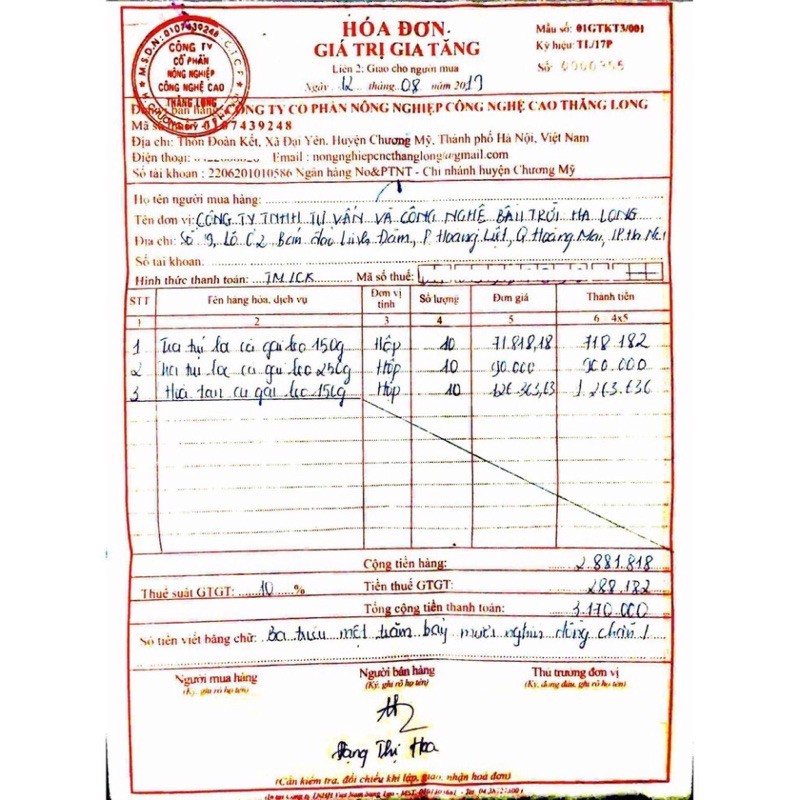 HÓA ĐƠN
GIÁ TRỊ GIA TĂNG
Liên 2: Giao cho người mua
Ngày 12 tháng 08 năm 2019
Mẫu số: 01GTKT3/001
Ký hiệu: TL/17P
Số:
M.S.D.N: 0107439248 - C.T.C.P
CÔNG TY
CỔ PHẦN
NÔNG NGHIỆP
CÔNG NGHỆ CAO
THĂNG LONG
CÔNG TY CỔ PHẦN NÔNG NGHIỆP CÔNG NGHỆ CAO THĂNG LONG
Mã số 0107439248
Địa chỉ: Thôn Đoàn Kết, Xã Đại Yên, Huyện Chương Mỹ, Thành phố Hà Nội, Việt Nam
Điện thoại: Email : nongnghiepcncthanglong@gmail.com
Số tài khoản : 2206201010586 Ngân hàng No&PTNT - Chi nhánh huyện Chương Mỹ
Họ tên người mua hàng:
Tên đơn vị: CÔNG TY TNHH TƯ VẤN VÀ CÔNG NGHỆ BẦU TRỜI HẠ LONG
Địa chỉ: Số 9, Lô C2 Bán đảo Linh Đàm, P Hoàng Liệt, Q Hoàng Mai, TP Hà Nội
Số tài khoản:
Hình thức thanh toán: TM/CK Mã số thuế:
STT Tên hàng hóa, dịch vụ Đơn vị tính Số lượng Đơn giá Thành tiền
1 2 3 4 5 6 4x5
1 Trà túi lọc cà gai leo 150g Hộp 10 71.818,18 718.182
2 Trà túi lọc cà gai leo 250g Hộp 10 90.000 900.000
3 Hòa tan cà gai leo 150g Hộp 10 126.363,63 1.263.636
Cộng tiền hàng: 2.881.818
Thuế suất GTGT: 10 % Tiền thuế GTGT: 288.182
Tổng cộng tiền thanh toán: 3.170.000
Số tiền viết bằng chữ: Ba triệu một trăm bảy mươi nghìn đồng chẵn /
Người mua hàng Người bán hàng Thủ trưởng đơn vị
(Ký, ghi rõ họ tên) (Ký, ghi rõ họ tên) (Ký, đóng dấu, ghi rõ họ tên)
Đặng Thị Hoa
(Cần kiểm tra, đối chiếu khi lập, giao, nhận hoá đơn)